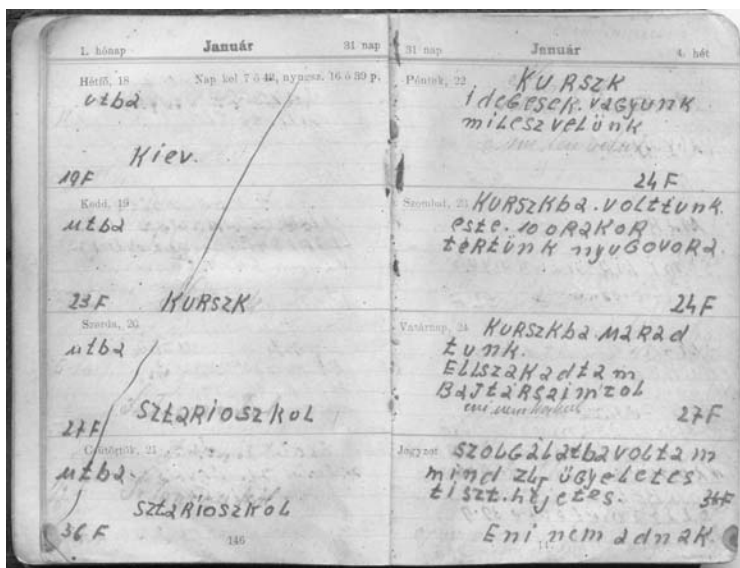 1. hónap Január 31 nap
Hétfő, 18 Nap kel 7 ó 42, nyugsz. 16 ó 39 p.
utba
Kiev.
19F
Kedd, 19
utba
23F KURSZK
Szerda, 20
utba
SztaRIOSZKOL
27F
Csütörtök, 21
utba
SztaRIOSZKOL
36 F
146
31 nap Január 4. hét
Péntek, 22 KURSZK
idegesek vagyunk
mileszvelünk
24 F
Szombat, 23 KURSZKba. voLttunk.
este. 10 oRakoR
téRtünk nyuGovoRa.
24F
Vasárnap, 24 KURSZKba maRad
tunk.
ELLszakadtam
BaJtáRsaimtol
27F
Jegyzet SzoLGáLatba voLtam
mind ügyeLetes
tiszt. 36F
Eni nem adnak.